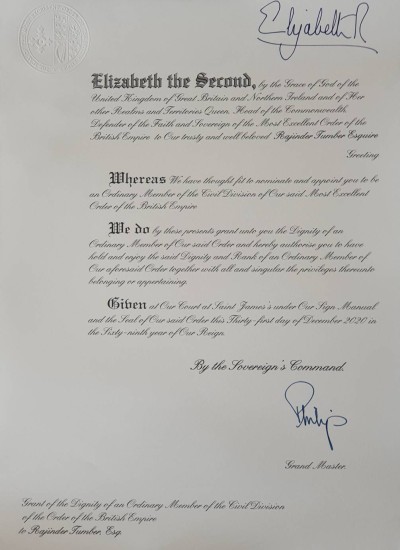 Elizabeth R
Elizabeth the Second, by the Grace of God of the
United Kingdom of Great Britain and Northern Ireland and of Her
other Realms and Territories Queen, Head of the Commonwealth,
Defender of the Faith and Sovereign of the Most Excellent Order of the
British Empire to Our trusty and well beloved Rajinder Tumber Esquire
Greeting
Whereas We have thought fit to nominate and appoint you to be
an Ordinary Member of the Civil Division of Our said Most Excellent
Order of the British Empire
We do by these presents grant unto you the Dignity of an
Ordinary Member of Our said Order and hereby authorise you to have
hold and enjoy the said Dignity and Rank of an Ordinary Member of
Our aforesaid Order together with all and singular the privileges thereunto
belonging or appertaining.
Given at Our Court at Saint James's under Our Sign Manual
and the Seal of Our said Order this Thirty-first day of December 2020 in
the Sixty-ninth year of Our Reign.
By the Sovereign's Command.
Philip
Grand Master.
Grant of the Dignity of an Ordinary Member of the Civil Division
of the Order of the British Empire
to Rajinder Tumber, Esq.